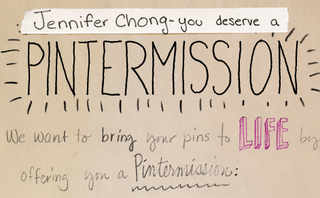 Jennifer Chong-you deserve a
PINTERMISSION
We want to bring your pins to LIFE by
offering you a Pintermission: